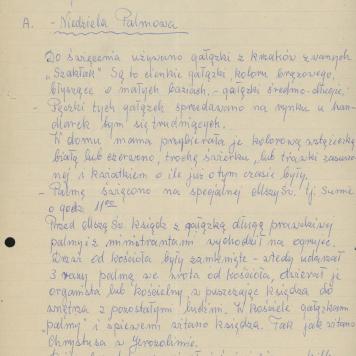 A. - Niedziela Palmowa
Do święcenia używano gałązki z krzaków zwanych
"Szakłak" Są to cienkie gałązki, koloru brązowego,
błyszące o małych baziach, - gałązki średnio-długie.
- Pęczki tych gałązek sprzedawano na rynku u han-
dlarek tym się trudniących.
W domu mama przybierała je kolorową wstążeczką
białą lub czerwono, trochę świerku, lub trawki zasuszo-
nej i kwiatkiem o ile już o tym czasie były.
- Palmę święcono na specjalnej Mszy Św. tj. sumie
o godz 11:00
Przed Mszą Św. ksiądz z gałązką długą prawdziwej
palmy i z ministrantami wychodził na ogrójce.
Drzwi od kościoła były zamknięte - wtedy uderzał
3 razy palmą we wrota od kościoła, otwierał je
organista lub kościelny wpuszczając księdza do
wnętrza z pozostałymi ludźmi. W kościele gałązkami
"palmy" i śpiewem witano księdza. Tak jak witano
Chrystusa w Jerozolimie.